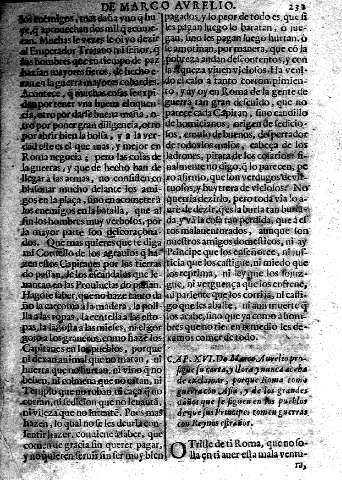 DE MARCO AVRELIO.
232
los enemigos, mas daña vno q̃ huye,
q̃ aprouechan dos mil q̃ acometan.
Muchas vezes le oi yo dezir
al Emperador Trajano mi señor, q̃
los hombres que en tiempo de paz
hazian mayores fieros, de hecho
eran en la guerra mayores cobardes.
por tener vna buena eloquencia,
otro por darse buena maña,
otro por poner gran diligencia, otro
por abrir bien la bolsa, y a la verdad
este es el que mas, y mejor en
Roma negocia; pero las cosas de
la guerra, y que de hecho han de
llegar a las armas, no consisten en
blasonar mucho delante los amigos
en la plaça, sino en acometer a
los enemigos en la batalla, que al
fin los hombres muy verbosos, por
la mayor parte son descoraçonados.
Que mas quieres que te diga
mi Cornelio de los agrauios q̃ hazen
estos Capitanes por las tierras
do passan, de los escandalos que leuantan
en las Prouincias do paran?
Hagote saber, que no haze tanto daño
la carcoma a la madera, la polilla
a las ropas, la centella a las estopas,
la lagosta a las mieses, ni el gorgojo
a los graneros, como haze los
Capitanes en los pueblos, porque
ni dexan animal que no matan, ni
huerta que no hurtan, ni vino q̃ no
beben, ni colmena que no catan, ni
Templo que no roban, ni caça q̃ no
corren, ni sedicion que no leuantan,
ni vileza que no intentẽ. Pues mas
hazen, lo qual no se les deuria consentir
hazer, conuiene a saber, que
comen de gracia sin querer pagar,
y no quieren seruir sin ser muy bien
pagados, y lo peor de todo es, que si
les pagan luego lo baratan, o juegan,
sino les pagan luego hurtan, o
se amotinan, por manera, que cõ la
pobreza andan descontentos, y con
la riqueza viuen viciosos. Ha venido
el caso a tanto corrompimiento,
y ay oy en Roma de la gente de
guerra tan gran descuido, que no
parece cada Capitan, sino caudillo
de homicianos, origen de sediciosos,
emulo de buenos, despertador
de todos los malos, cabeça de los
ladrones, pirata de los cosarios: finalmente
no digo, q̃ lo parecen, pero
afirmo, que son verdugos de virtuosos,
y huyrtera de viciosos? No
querria dezirlo, pero toda via lo auré
de dezir, q̃ es la burla tan burlada,
y va la cosa tan perdida, que a estos
malauenturados, aunque son
nuestros amigos domesticos, ni ay
Principe que los enseñoree, ni justicia
que los castigue, ni miedo que
los reprima, ni ley que los sojuzgue,
ni verguença que los enfrene,
ni pariente que los corrija, ni castigo
que les abaste, ni aun muerte q̃
los acabe, sino que ya como a hombres
que no tienẽ remedio les dexamos
comer de todo.
CAP. XVI. Do Marco Aurelio prosigue
su carta, y llora y nunca acaba
de exclamar, porque Roma tomò
guerra cõn Asia, y de los grandes
daños que se siguen en los pueblos
de que sus Principes tomen guerras
con Reynos estraños.
O Triste de ti Roma, que no solia
en ti auer esta mala ventu-
ra,